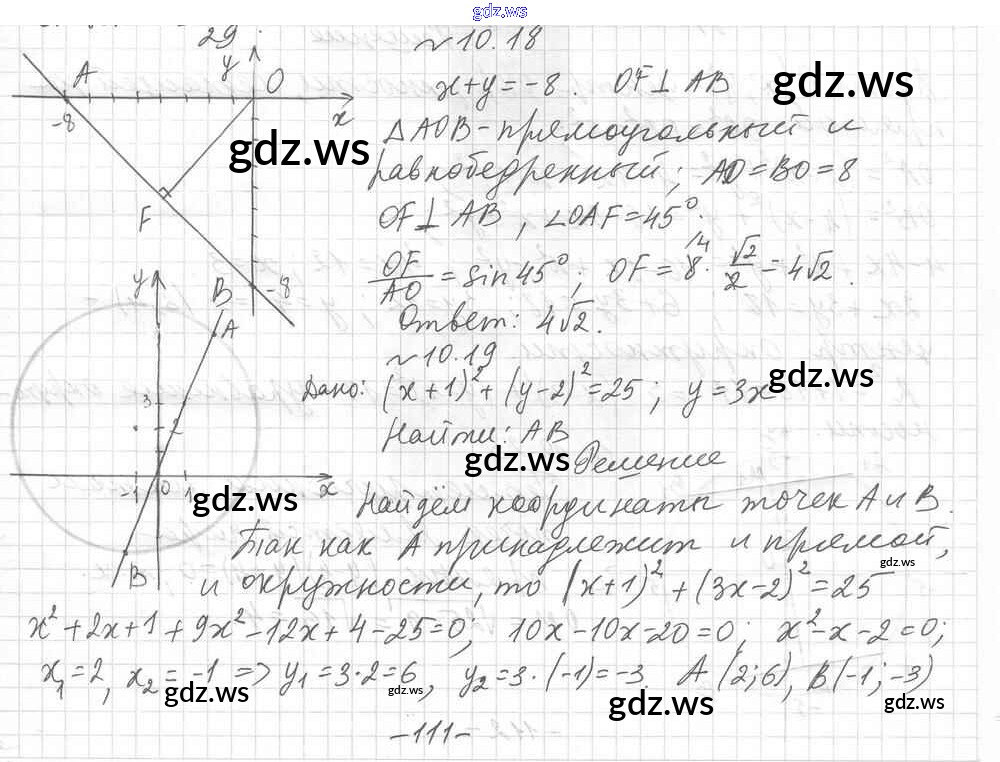 gdz.ws
29.
N 10.18
x+y=-8. OF⊥AB
gdz.ws
△AOB-прямоугольный и
gdz.ws
равнобедренный; AO=BO=8
OF⊥AB, ∠OAF=45°.
OF/AO = sin 45°; OF = 8 4 · √2/2 = 4√2.
Ответ: 4√2.
y A O x -8 F -8
N 10.19
Дано: (x+1)²+(y-2)²=25; y=3x
gdz.ws
Найти: AB
gdz.ws
Решение
y B A 3 2 -1 0 1 x B
gdz.ws
Найдём координаты точек A и B.
Так как A принадлежит и прямой,
gdz.ws
и окружности, то (x+1)²+(3x-2)²=25
x²+2x+1+9x²-12x+4-25=0; 10x-10x-20=0; x²-x-2=0;
x₁=2, x₂=-1 => y₁=3·2=6, y₂=3·(-1)=-3. A(2;6), B(-1;-3)
gdz.ws gdz.ws gdz.ws gdz.ws
-111-